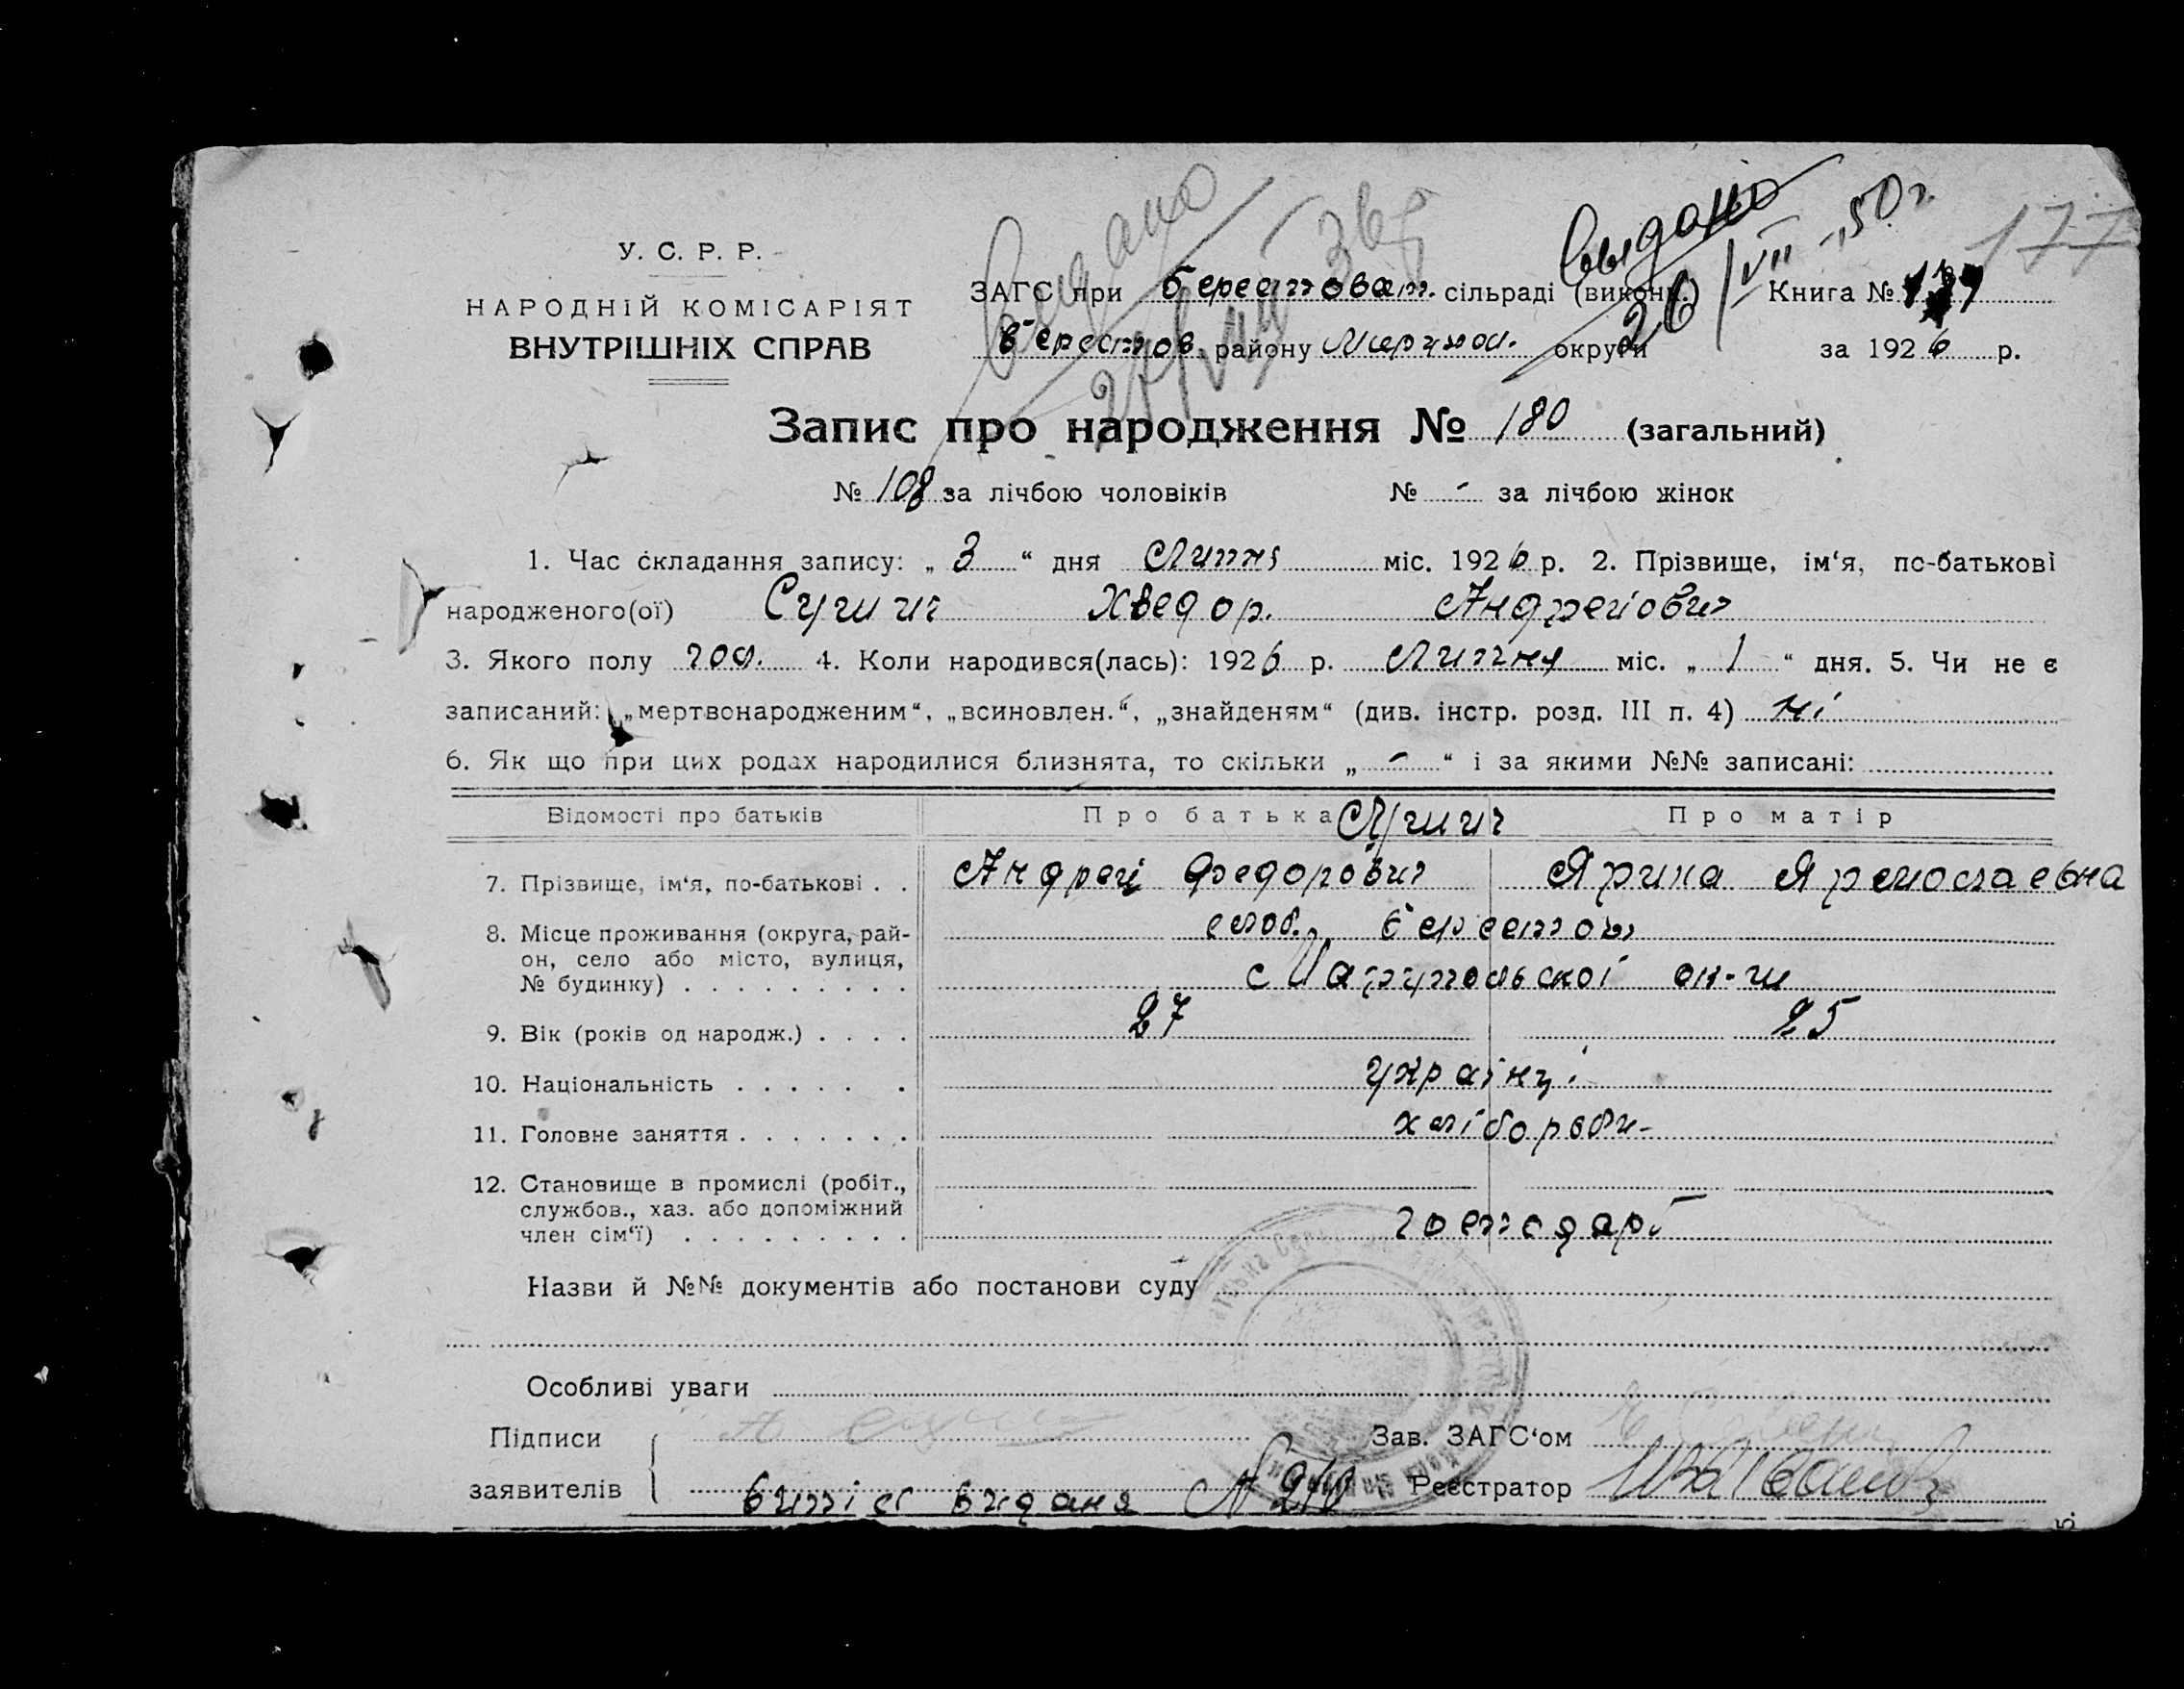 Видано 27/VII 36 р
Выдано 26/VII-50 г.
177
У. С. Р. Р.
НАРОДНІЙ КОМІСАРІЯТ
ВНУТРІШНІХ СПРАВ
ЗАГС при Берестоват. сільраді (викони.) Книга №
Берестов. району Маріюп. округи за 1926 р.
Запис про народження № 180 (загальний)
№ 108 за лічбою чоловіків № - за лічбою жінок
1. Час складання запису: „ 3 “ дня Липня міс. 1926 р. 2. Прізвище, ім‘я, по-батькові
народженого(ої) Сушич Хведор. Андрейович
3. Якого полу чол. 4. Коли народився(лась): 1926 р. Липня міс. „ 1 “ дня. 5. Чи не є
записаний: „мертвонародженим“, „всиновлен.“, „знайденям“ (див. інстр. розд. III п. 4) ні
6. Як що при цих родах народилися близнята, то скільки „ - “ і за якими №№ записані:
Відомості про батьків Про батька Сушич Про матір
7. Прізвище, ім‘я, по-батькові . . Андрей Федорович Ярина
8. Місце проживання (округа, рай-
он, село або місто, вулиця,
№ будинку) . . . . . . . . .
Берестов
Маріупольскоі ок-и
9. Вік (років од народж.) . . . . 27 25
10. Національність . . . . . . українці
11. Головне заняття . . . . . . . хлібороби-
12. Становище в промислі (робіт.,
службов., хаз. або допоміжний
член сім‘ї) . . . . . . . . . господарі
Назви й №№ документів або постанови суду
Особливі уваги
Підписи Зав. ЗАГС‘ом
заявителів витіс видана № 210 Реєстратор
5.